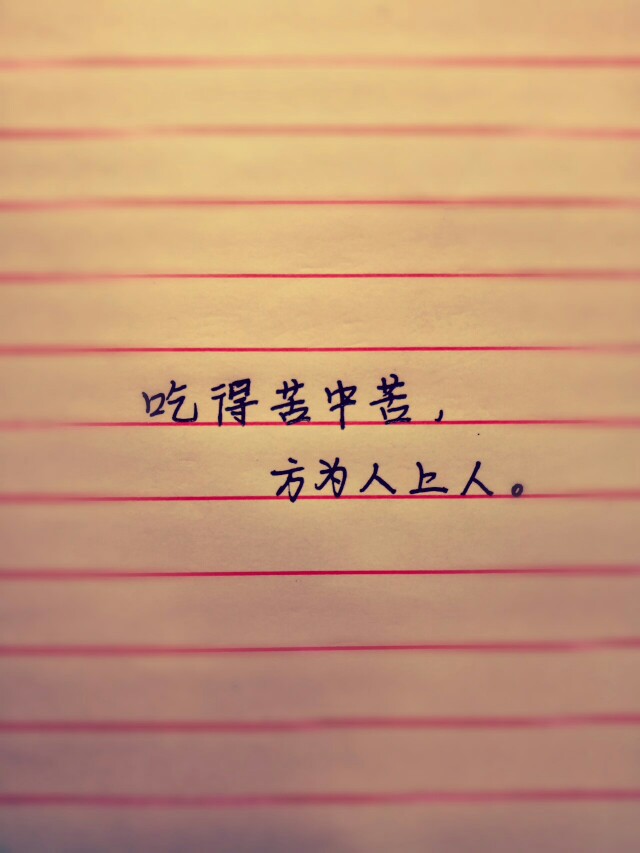 吃得苦中苦,
方为人上人。